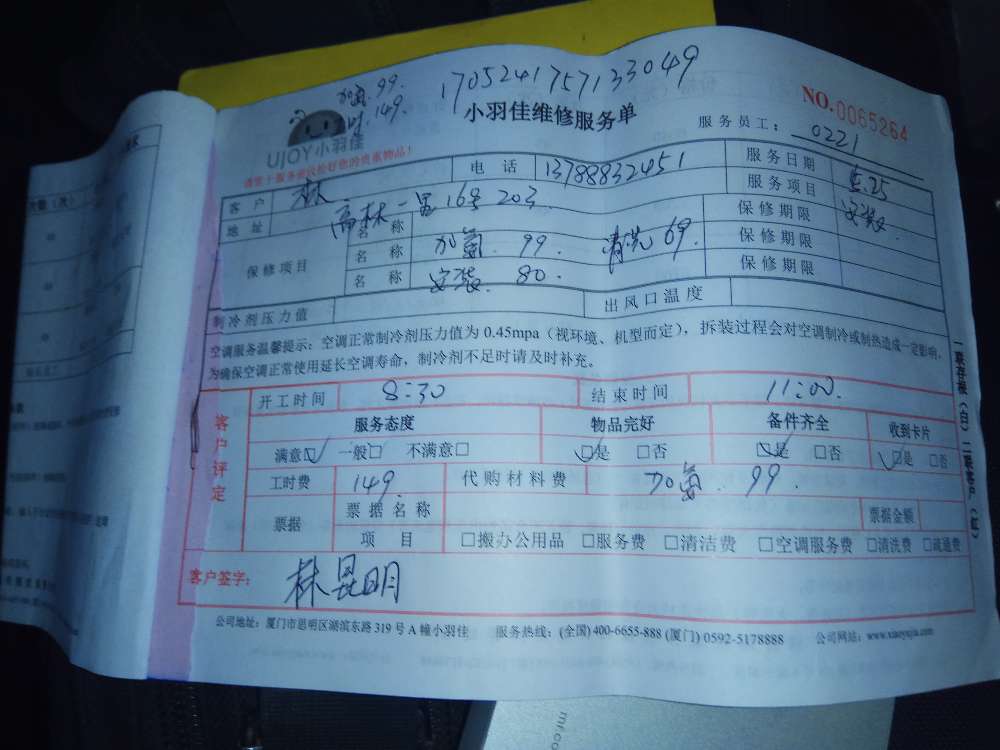 加氟.99. 170524175713304​9
时.149.
NO.0065264
UJOY小羽佳
小羽佳维修服务单
服务员工: 0221
客户 林 电话 13788832451 服务日期 5.25
地址 高林一里16号203. 服务项目 安装
保修项目 名称 保修期限
名称 加氟 99. 清洗69. 保修期限
名称 安装 80. 保修期限
制冷剂压力值 出风口温度
空调服务温馨提示: 空调正常制冷剂压力值为 0.45mpa (视环境、机型而定), 拆装过程会对空调制冷或制热造成一定影响,
为确保空调正常使用延长空调寿命, 制冷剂不足时请及时补充。
客户评定
开工时间 8:30 结束时间 11:00.
服务态度 物品完好 备件齐全 收到卡片
满意☑ 一般□ 不满意□ ☑是 □否 ☑是 □否 ☑是 □否
工时费 149. 代购材料费 加氟. 99.
票据 票据名称 票据金额
项目 □搬办公用品 □服务费 □清洁费 □空调服务费 □清洗费 □疏通费
客户签字: 林昆明
公司地址: 厦门市思明区湖滨东路 319 号 A 幢小羽佳 服务热线: (全国) 400-6655-888 (厦门) 0592-5178888 公司网站: www.xiaoyujia.com
一联存根(白) 二联客户(红)